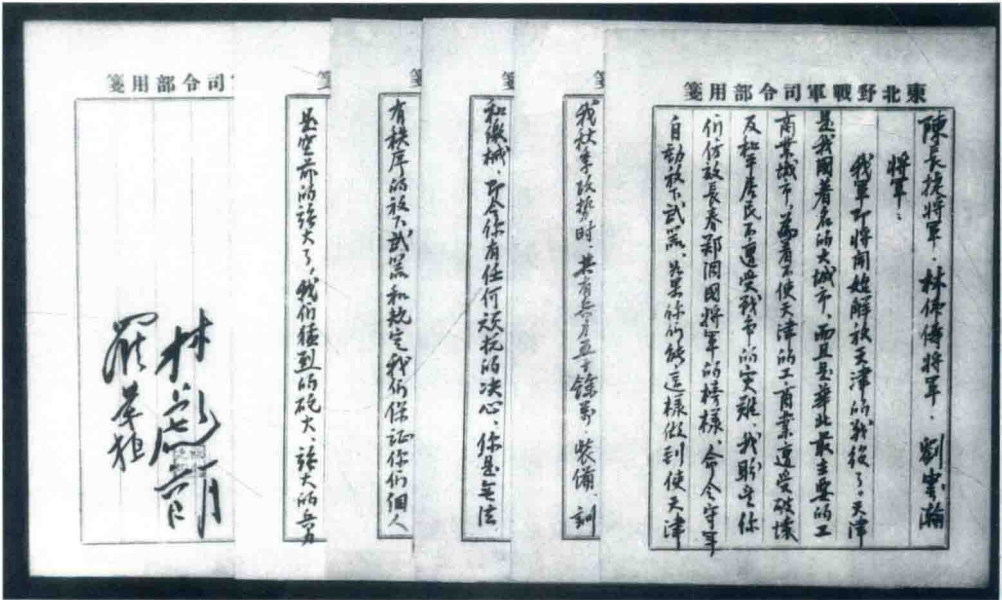 東北野戰軍司令部用箋
陳長捷將軍.林偉儔將軍.劉雲瀚
將軍:
我軍即將開始解放天津的戰役了。天津
是我國著名的大城市,而且是華北最主要的工
商業城市,為着不使天津的工商業遭受破壞
及和平居民不遭受战争的灾难,我盼望你
们,仿放長春鄭洞國將軍的榜樣,命令守軍
自動放下武器、如果你们能這樣做到使天津
箋
我秋季攻势时,共有兵力五十餘萬,裝備、訓
箋
和機械,即令你有任何顽抗的决心,你是無法
箋
有秩序的放下武器和 我们保证你们個人
箋
是空前的強大了,我们猛烈的砲火、強大的兵力
司令部用箋
林彪
羅榮桓